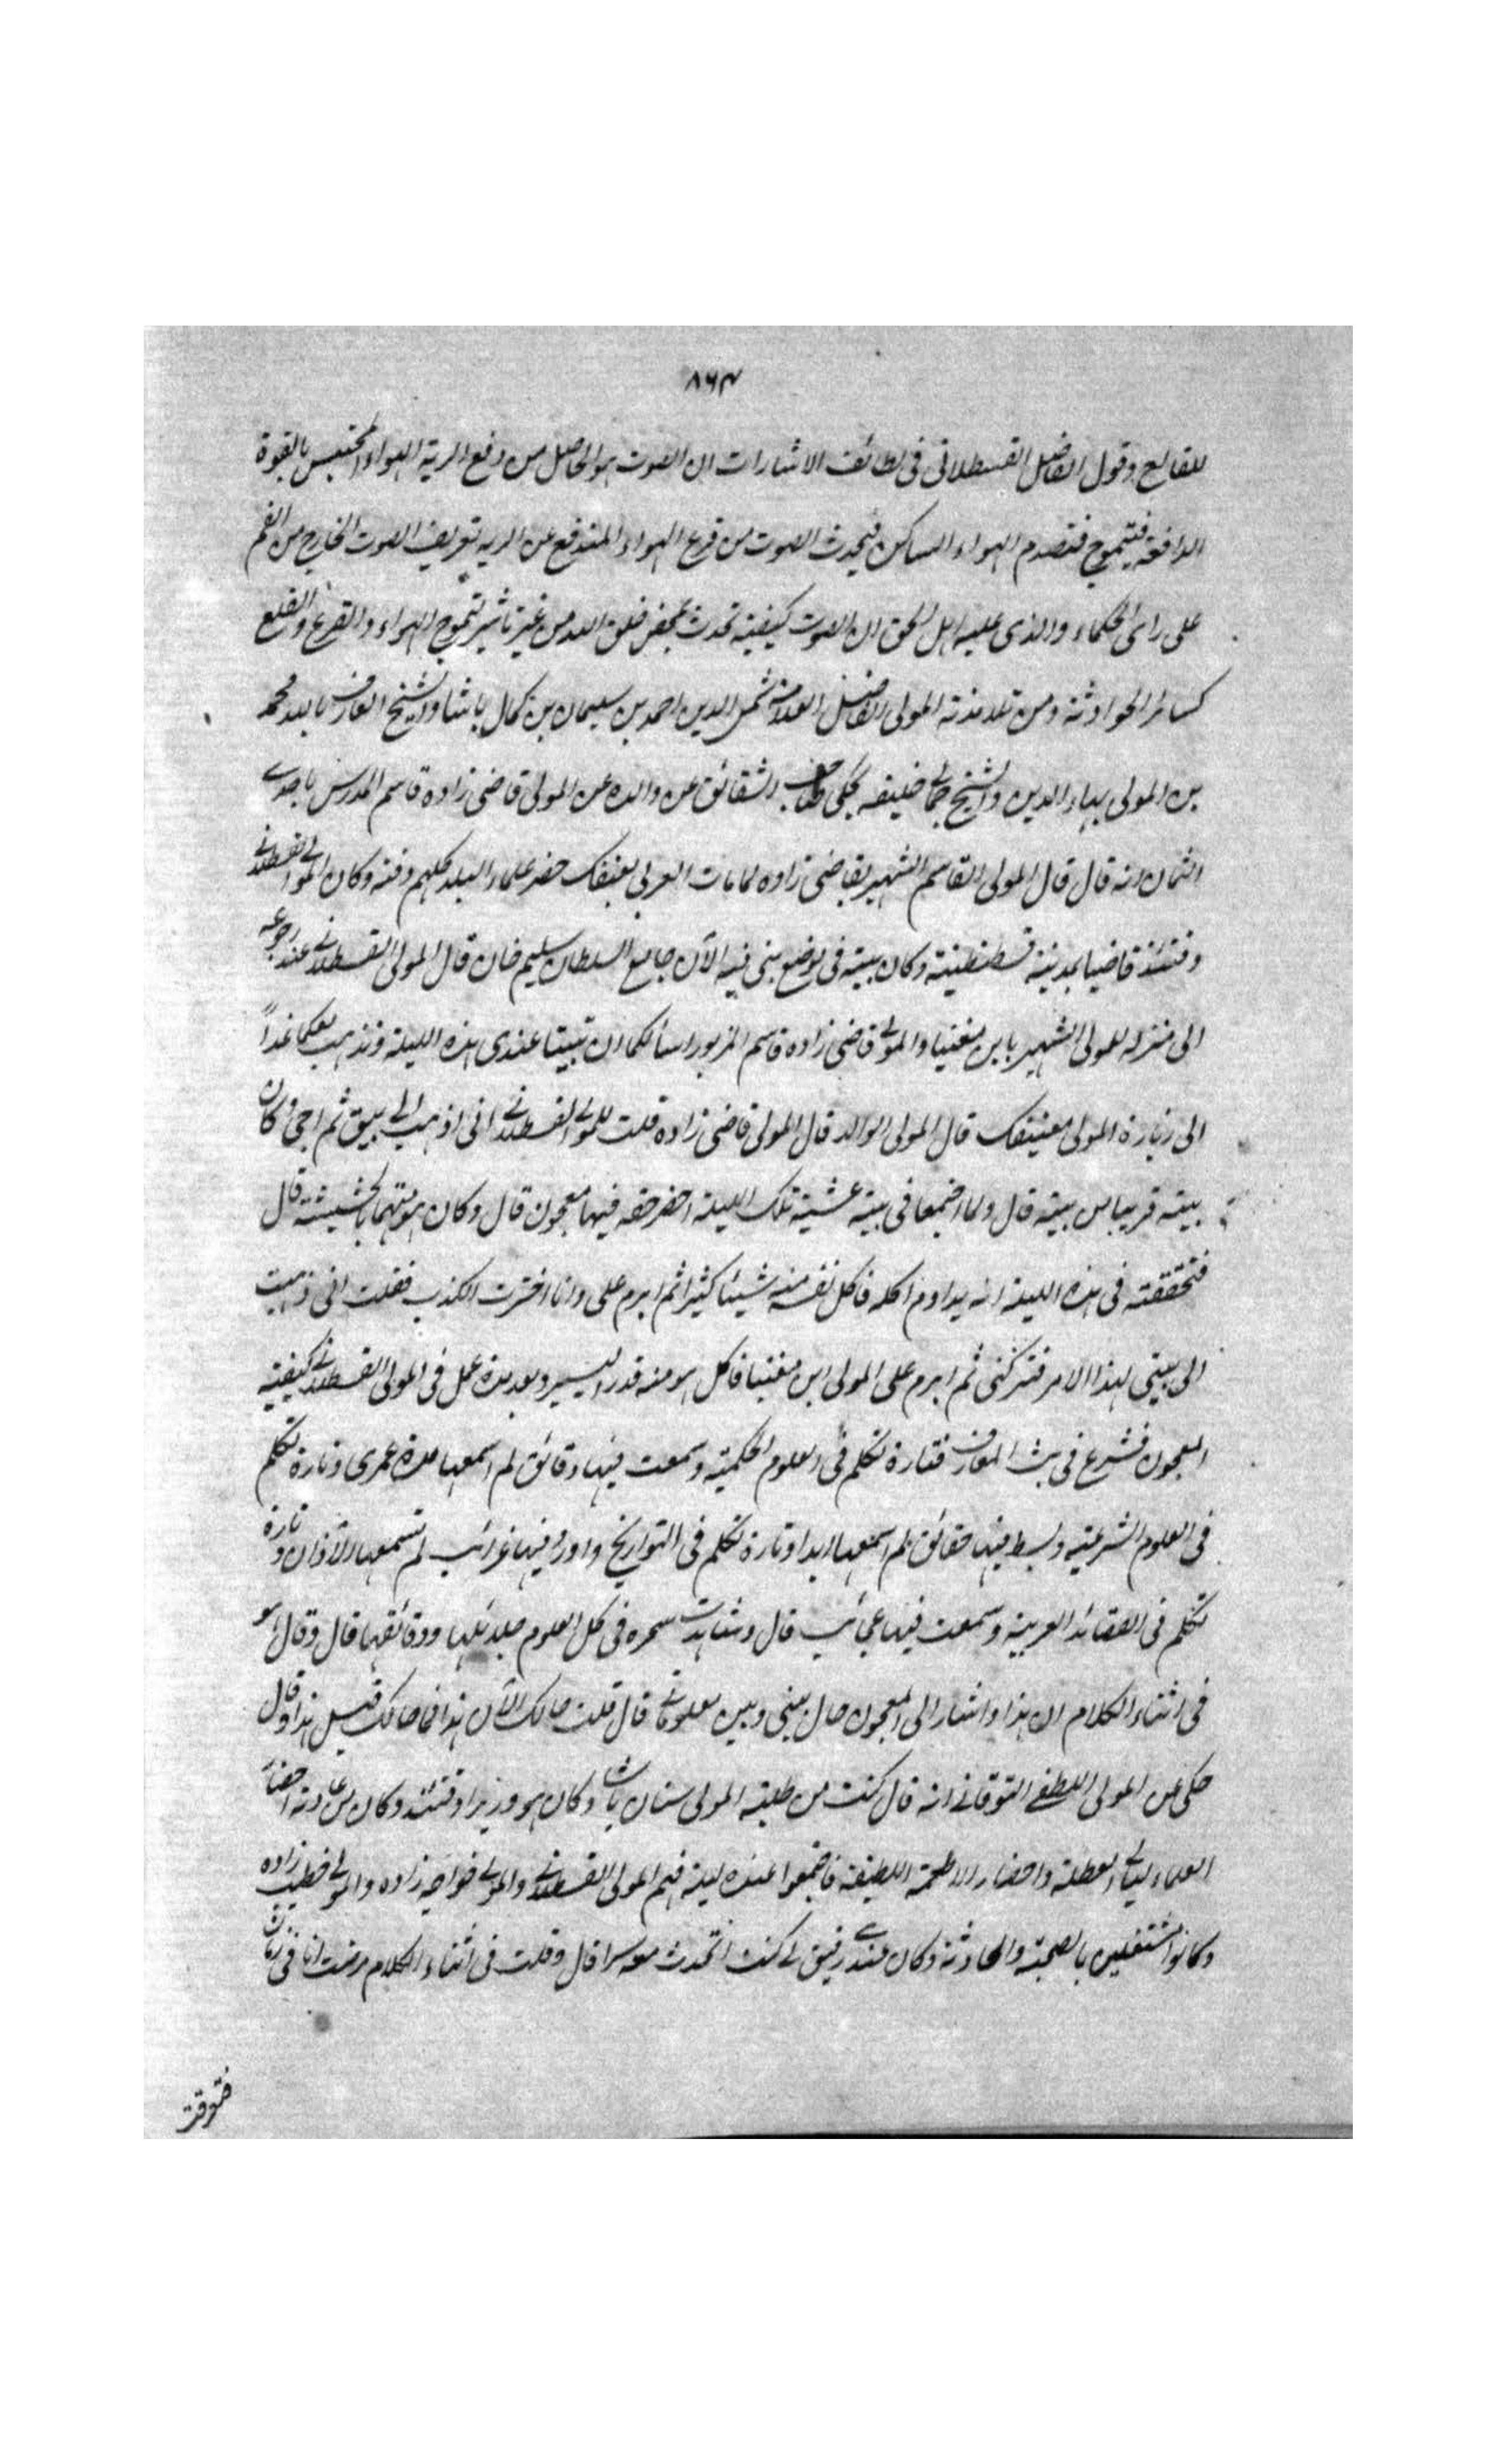 ٨٦٣
للقالع وقول الفاضل القسطلانى فى لطائف الاشارات ان الصوت هو الحاصل من دفع الرية الهواء المحتبس بالقوة
الدافعة فيتموج فتصدم الهواء الساكن فيحدث الصوت من قرع الهواء المندفع عن الرية تعريف الصوت الخارج من الفم
على رائى الحكماء والذى عليه اهل الحق ان الصوت كيفية تحدث بمحض خلق الله من غير تاثير لتموج الهواء والقرع والقلع
كسائر الحوادثة ومن تلامذته المولى الفاضل العلامة شمس الدين احمد بن سليمان بن كمال باشا والشيخ العارف بالله محمد
بن المولى بهاء الدين والشيخ جمالى خليفه حكى صاحب الشقائق عن والده عن المولى قاضى زاده قاسم المدرس باحدى
الثمان انه قال قال المولى القاسم الشهير بقاضى زاده لما مات العربى بغنفك حضر علماء البلد كلهم دفنه وكان المولى القسطلانى
وقتئذ قاضيا بمدينة قسطنطينية وكان بيته فى موضع بنى فيه الآن جامع السلطان سليم خان قال المولى القسطلانى عند رجوعه
الى منزله للمولى الشهير بابن مغنيا والمولى قاضى زاده قاسم المزبور اسألكما ان تبيتا عندى هذه الليلة ونذهب معكما غداً
الى زيارة المولى مغينفك قال المولى الوالد قال المولى قاضى زاده قلت للمولى القسطلانى انى اذهب الى بيتى ثم اجئ وكان
بيته قريبا من بيته قال ولما اجتمعا فى بيته عشية تلك الليلة احضر حقه فيها معجون قال وكان هو متهما بالحشيشة قال
فتحققته فى هذه الليلة انه يداوم اكله فاكل نفسه منه شيئا كثيرا ثم ابرم على وانا اخترت الكذب فقلت انى ذهبت
الى بيتى لهذا الامر فتركنى ثم ابرم على المولى ابن مغنيا فاكل هو منه قدر اليسير وبعد مدة عمل فى المولى القسطلانى كيفية
المعجون فشرع فى بث المعارف فتارة تكلم فى العلوم الحكمية وسمعت فيها دقائق لم اسمعها مدة عمرى وتارة تكلم
فى العلوم الشرعية وبسط فيها حقائق لم اسمعها ابدا وتارة تكلم فى التواريخ واورد فيها غرائب لم تسمعها الآذان وتارة
تكلم فى القصائد العربية وسمعت فيها عجائب قال وشاهدت تبحره فى كل العلوم جلائلها ودقائقها قال وقال هو
فى اثناء الكلام ان هذا واشار الى المعجون حال بينى وبين معلوماتى قال قلت حالك الآن هذا فما حالك قبيل هذا وقال
حكى عن المولى اللطفى التوقاتى انه قال كنت من طلبة المولى سنان باشا وكان هو وزيرا وقتئذ وكان من عادته احضار
العلماء ليالى العطلة واحضار الاطعمة اللطيفة فاجتمعوا عنده ليلة فيهم المولى القسطلانى والمولى خواجه زاده والمولى خطيب زاده
وكانوا مشتغلين بالصحبة والمحادثة وكان عندى رفيق لى كنت اتحدث معه سرا قال وقلت فى اثناء الكلام مرضت انا فى زمان
فتوقت